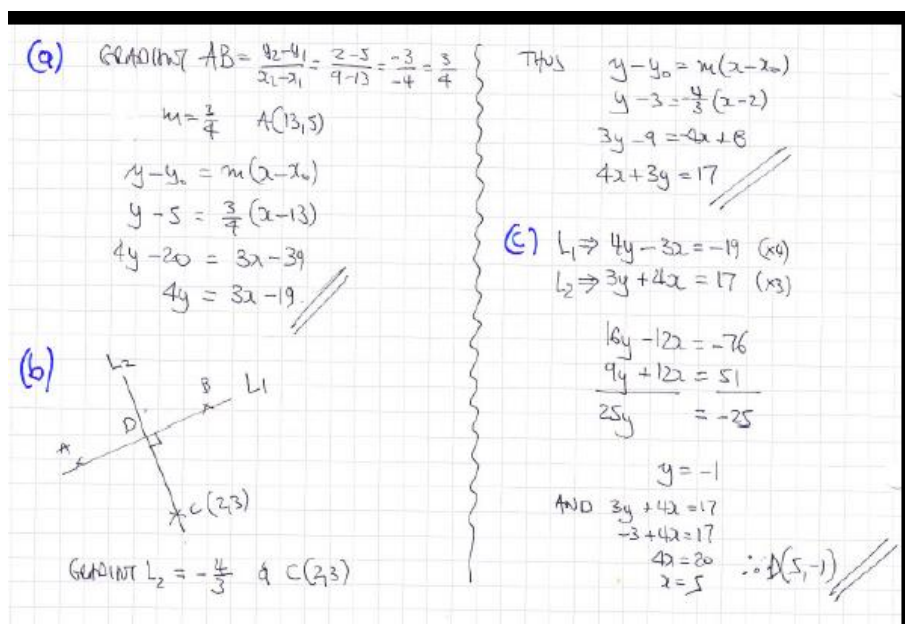 (a) GRADIENT AB = \frac{y_2-y_1}{x_2-x_1} = \frac{2-5}{9-13} = \frac{-3}{-4} = \frac{3}{4}
m = \frac{3}{4} A(13,5)
y - y_0 = m(x - x_0)
y - 5 = \frac{3}{4}(x - 13)
4y - 20 = 3x - 39
4y = 3x - 19
(b)
L2
B L1
D
A
C(2,3)
GRADIENT L_2 = -\frac{4}{3} & C(2,3)
THUS y - y_0 = m(x - x_0)
y - 3 = -\frac{4}{3}(x - 2)
3y - 9 = -4x + 8
4x + 3y = 17
(c) L_1 ⇒ 4y - 3x = -19 (×4)
L_2 ⇒ 3y + 4x = 17 (×3)
16y - 12x = -76
9y + 12x = 51
25y = -25
y = -1
AND 3y + 4x = 17
-3 + 4x = 17
4x = 20
x = 5 ∴ D(5,-1)